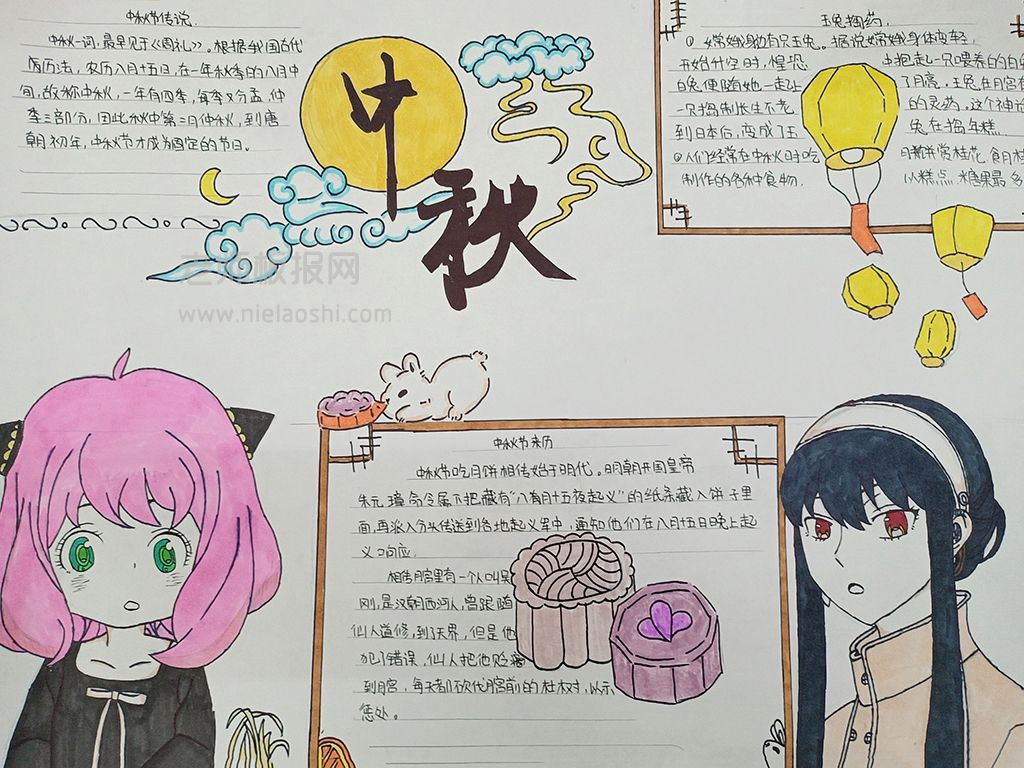 中秋节传说.
中秋一词,最早见于《周礼》。根据我国古代
历法,农历八月十五日,在一年秋季的八月中
间,故称中秋,一年有四季,每季又分孟,仲
季三部分,因此秋中第二月仲秋,到唐
朝初年,中秋节才成为固定的节日。
中
秋
玉兔捣药.
① 嫦娥身边有只玉兔。据说嫦娥身体变轻,
开始升空时,惶恐 中抱起一只喂养的白
兔便随她一起上 了月亮,玉兔在月宫有
一只捣制长生不老 的灵药。这个神话
到日本后,变成了玉 兔在捣年糕.
②人们经常在中秋时吃 月饼赏桂花,食用桂
制作的各种食物. 以糕点 糖果最多
老师板报网
www.nielaoshi.com
中秋节来历
中秋节吃月饼相传始于明代。明朝开国皇帝
朱元璋命令属下把藏有“八月十五夜起义”的纸条藏入饼子里
面,再派人分头传送到各地起义军中,通知他们在八月十五日晚上起
义响应.
相传月宫里有一个人叫吴
刚,是汉朝西河人,曾跟随
仙人道修,到了天界,但是他
犯了错误,仙人把他贬谪
到月宫,每天都砍伐月宫前的桂树,以示
惩处。